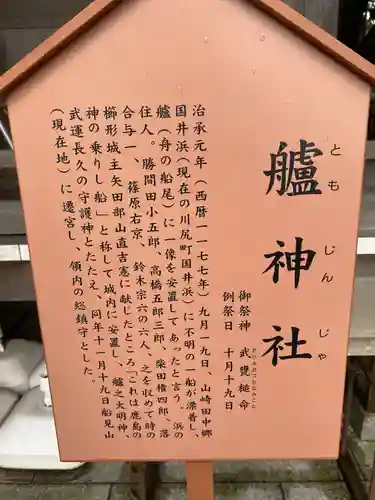 艫神社
ともじんじゃ
御祭神 武甕槌命
たけみかづちのみこと
例祭日 十月十九日
治承元年(西暦一一七七年)九月一九日、山崎田中郷
国井浜(現在の川尻町国井浜)に不明の一船が漂着し、
艫(舟の船尾)に一像を安置してあったと言う。浜の
住人。勝間田小五郎、高橋五郎三郎、柴田権四郎 落
合与一、篠原右京、鈴木宗六の六人、之を収めて時の
櫛形城主矢田部山直吉憲に献じたところ「これは鹿島の
神の乗りし船」と称して城内に安置し、艫之大明神、
武運長久の守護神とたたえ、同年十一月十九日船見山
(現在地)に遷宮し、領内の総鎮守とした。